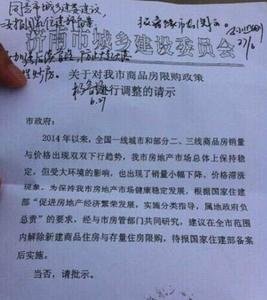 济南市城乡建设委员会
关于对我市商品房限购政策
进行调整的请示
市政府：
2014年以来，全国一线城市和部分二、三线商品房销量
与价格出现双双下行趋势，我市房地产市场总体上保持稳
定，但受大环境的影响，也出现了销量小幅下降，价格滞涨现
象。为保持我市房地产市场健康稳定发展，根据国家住建
部“促进房地产经济繁荣发展，实施分类指导，属地政府负
总责”的要求，经与市房管部门共同研究，建议在全市范围
内解除新建商品住房与存量住房限购，待报国家住建部备案
后实施。
当否，请批示。